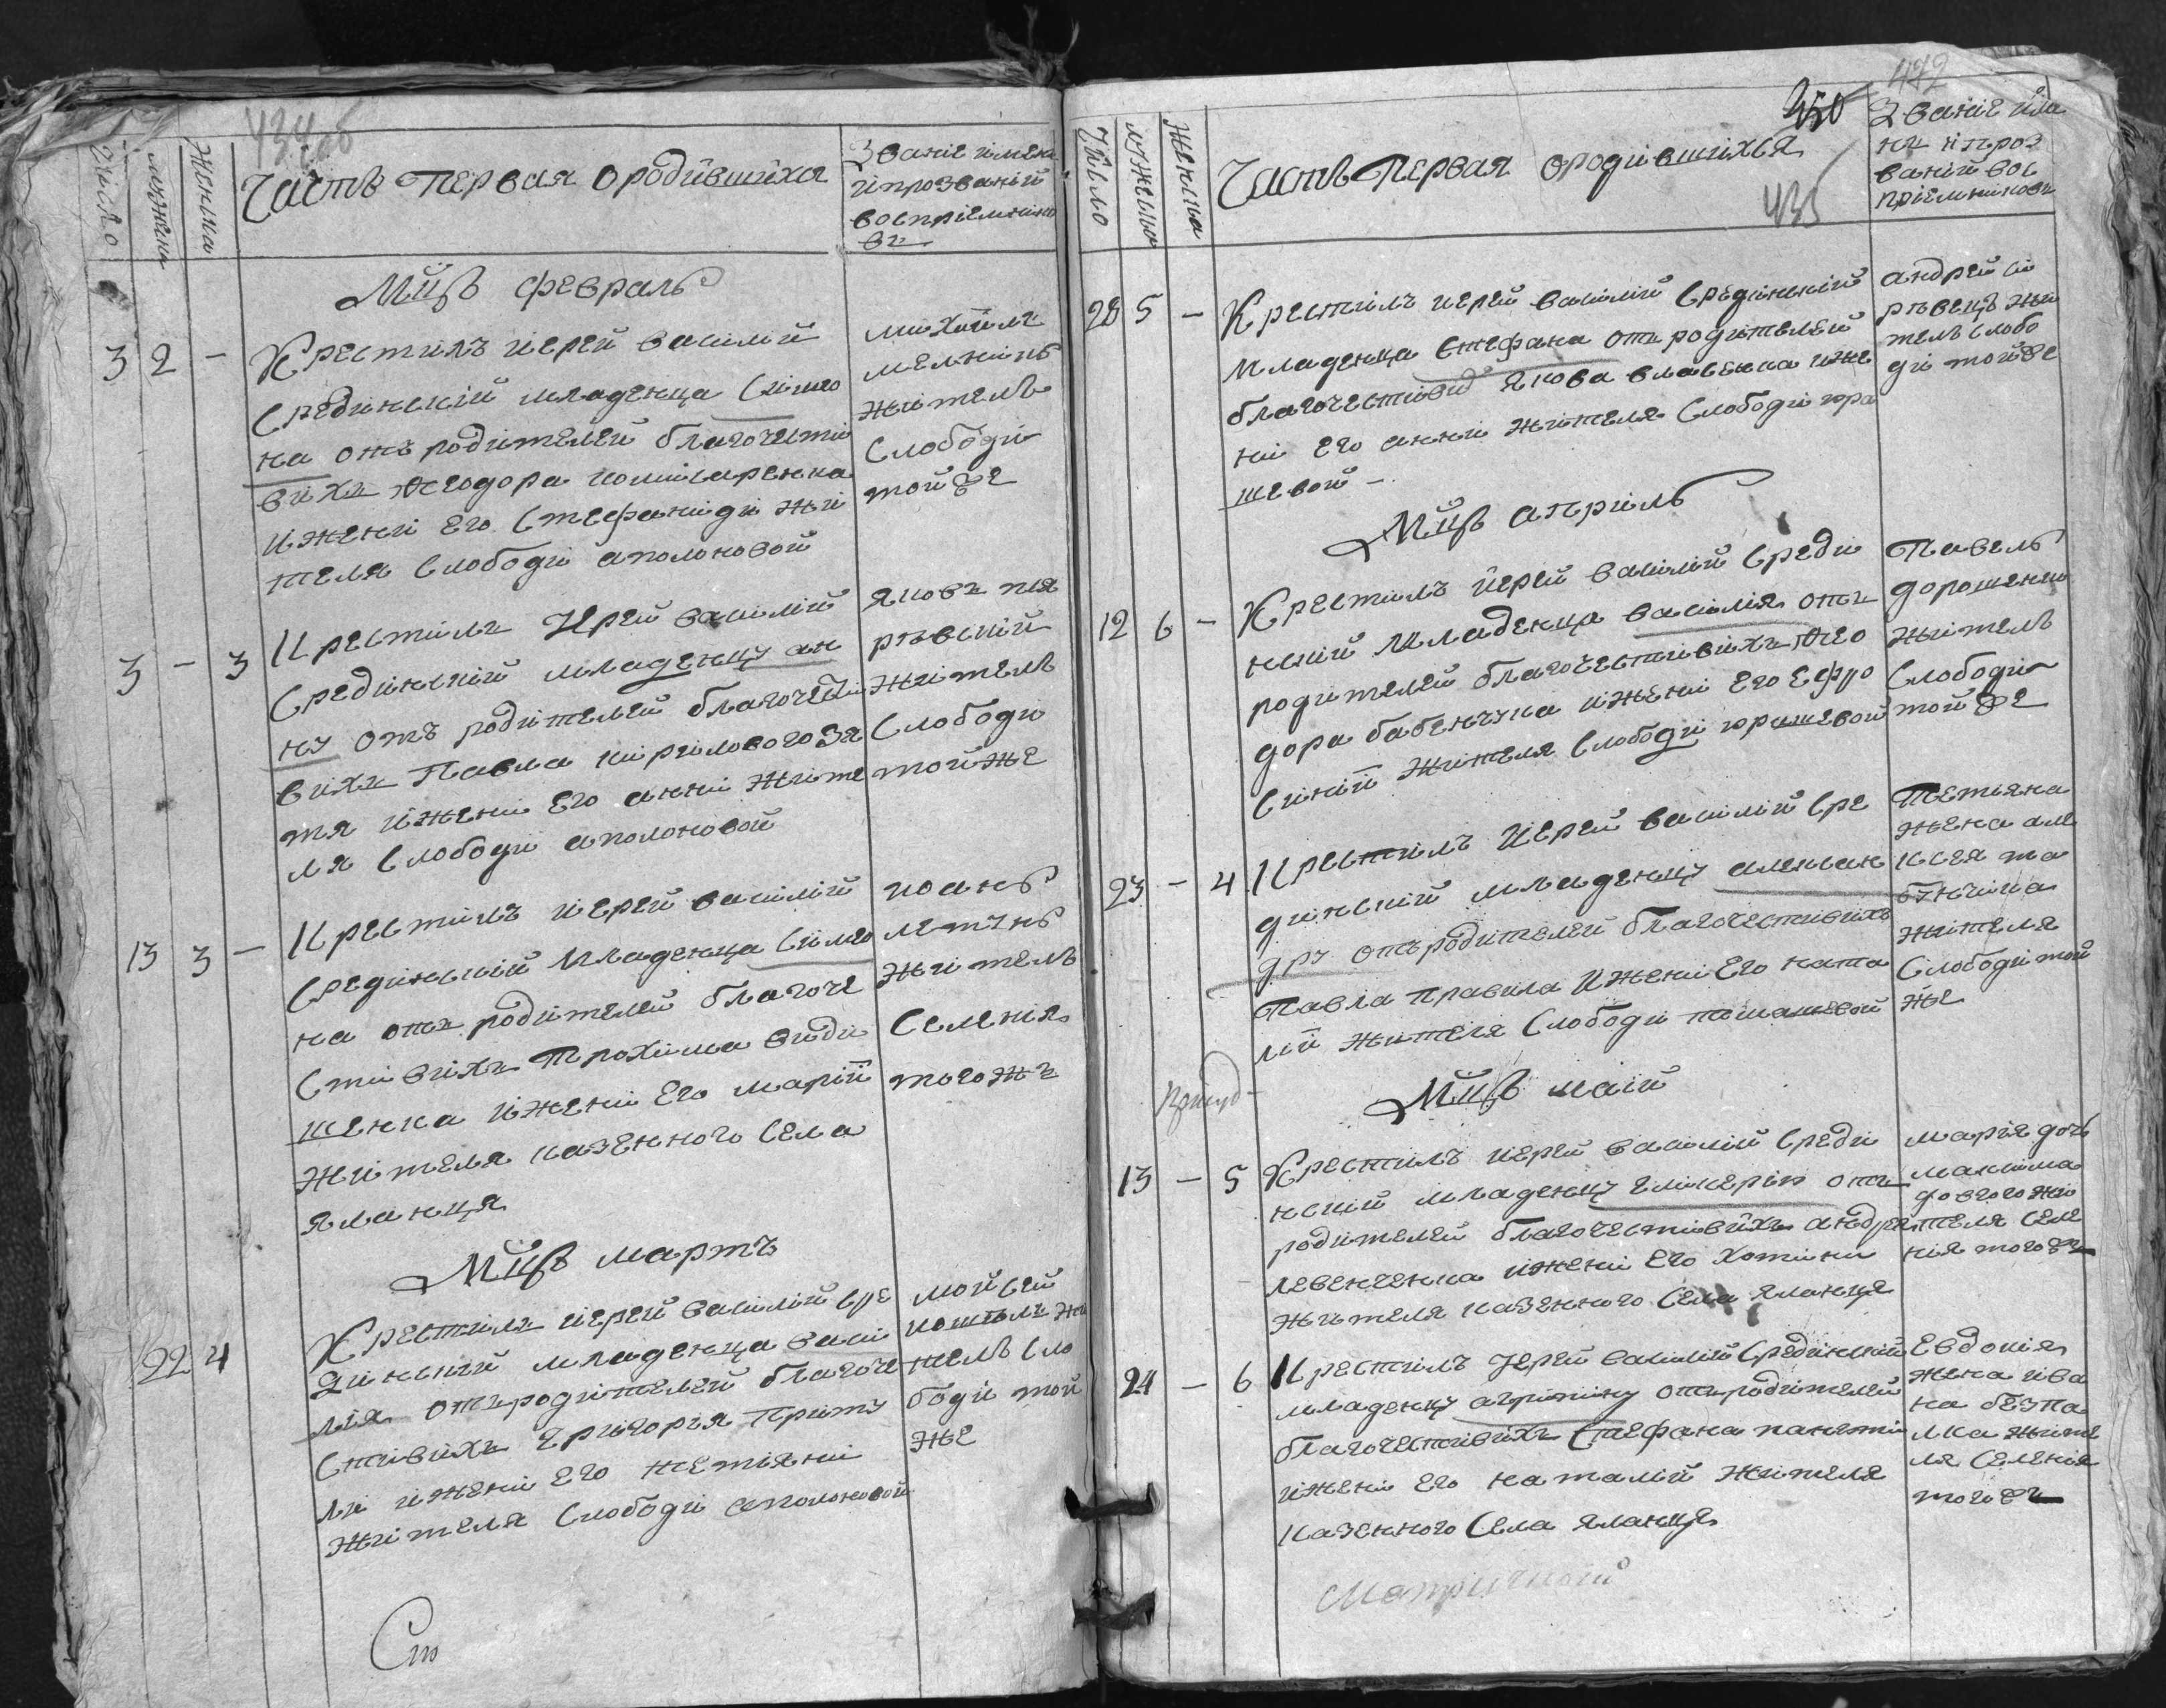 434 об
Число
мужска
женска
Часть первая ородившихся
Звание имена
ипрозваний
восприемнико
въ
Мцъ февраль
3 2 -
Крестилъ иерей василий
Срединский младенца Симео
на отъ родителей благочести
вихъ Феодора комисаренка
ижени его Стефаниди жи
теля Слободи аполоновой
михаилъ
мелникъ
житель
Слободи
той же
3 - 3
Крестилъ Иерей василий
Срединский младенцу ан
ну отъ родителей благочести
вихъ Павла кириловогозя
тя ижени его анни жите
ля Слободи аполоновой
Яковъ пия
ръвский
житель
Слободи
тойже
13 3 -
Крестилъ иерей василий
Срединский младенца Симео
на отъ родителей благоче
стивихъ Трохима види
шенка ижени его марии
жителя казенного Села
Яланця
иоанъ
летунъ
житель
Селения
тогожъ
Мцъ мартъ
22 4
Крестилъ иерей василий Сре
динский младенца васи
лия отъродителей благоче
стивихъ григория приту
ли ижени его тетяни
жителя Слободи аполоновой
мойсей
жи
тель Сло
боди той
же
472
450
435
Число
мужеска
женска
Часть Первая ородившихся
Звание име
на ипроз
ваний вос
приемниковъ
28 5 -
Крестилъ иерей василий Срединский
младенца Стефана отъ родителей
благочестивих Якова власенка ижe
ни его анни жителя Слободи юра
шевой -
андрей пи
ръвецъ жи
тель Слобо
ди тойже
Мцъ априль
12 6 -
Крестилъ иерей василий Среди
нский младенца василия отъ
родителей благочестивихъ Фео
дора бабенчука ижени его Ефро
Синии жителя Слободи юрашевой
Павелъ
дорошенко
житель
Слободи
той же
23 - 4
Крестилъ Иерей василий Сре
динский младенцу александ
ру отъродителей благочестивихъ
Павла правила ижени его ната
лии жителя Слободи
Тетяна
жена але
ксея та
бунчика
жителя
Слободи той
же
Мцъ маий
13 - 5
Крестилъ иерей василий Среди
нский младенцу гликерию отъ
родителей благочестивихъ андрея
левенченка ижени его Хотини
жителя казенного Села Яланця
мария дочь
максима
довгого жи
теля Селе
ния тогожъ
24 - 6
Крестилъ Иерей василий Срединский
младенцу агрипину отъродителей
благочестивихъ Стефана
ижени его наталий жителя
казенного Села Яланця
Евдокия
жена ива
на безпа
лка жите
ля Селения
тогожъ
Ст